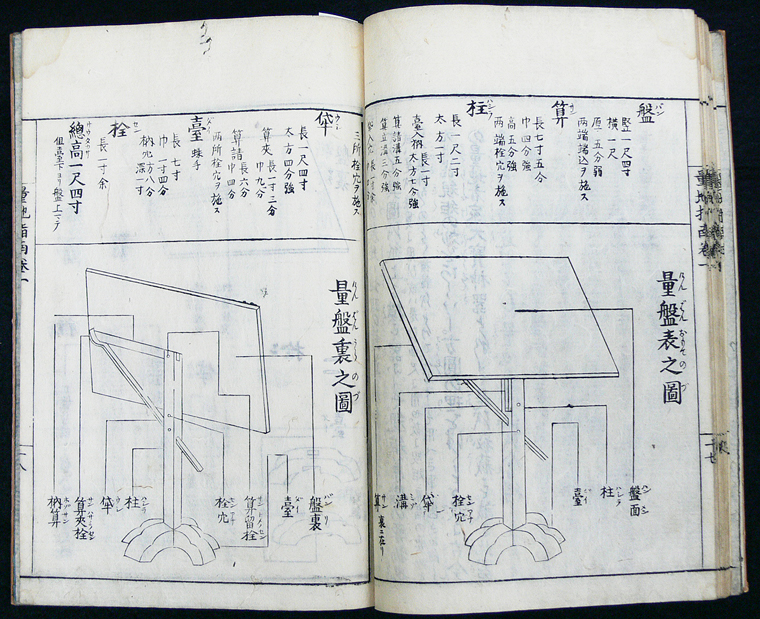 盤
竪一尺四寸
横一尺
厚五分弱
両端端込ヲ施ス
算
長七寸五分
巾四分強
高五分強
両端栓穴ヲ施ス
柱
長一尺二寸
太方一寸
臺入枘長一寸
太方七分強
算詰溝五分強
算立溝三分強
三所栓穴ヲ施ス
長一尺四寸
太方四分強
算夾長一寸三分
巾九分
算詰長六分
巾四分
両所栓穴ヲ施ス
臺
蛛手
長七寸
巾一寸四分
枘穴方八分
深一寸
栓
長一寸余
總高一尺四寸
但臺下ヨリ盤上マテ
量盤表之圖
盤面
柱
臺
栓穴
溝
算裏ニ在リ
量盤裏之圖
盤裏
臺
算留栓
栓穴
柱
算夾栓
枘算
量地指南卷一
十七
量地指南卷一
十八